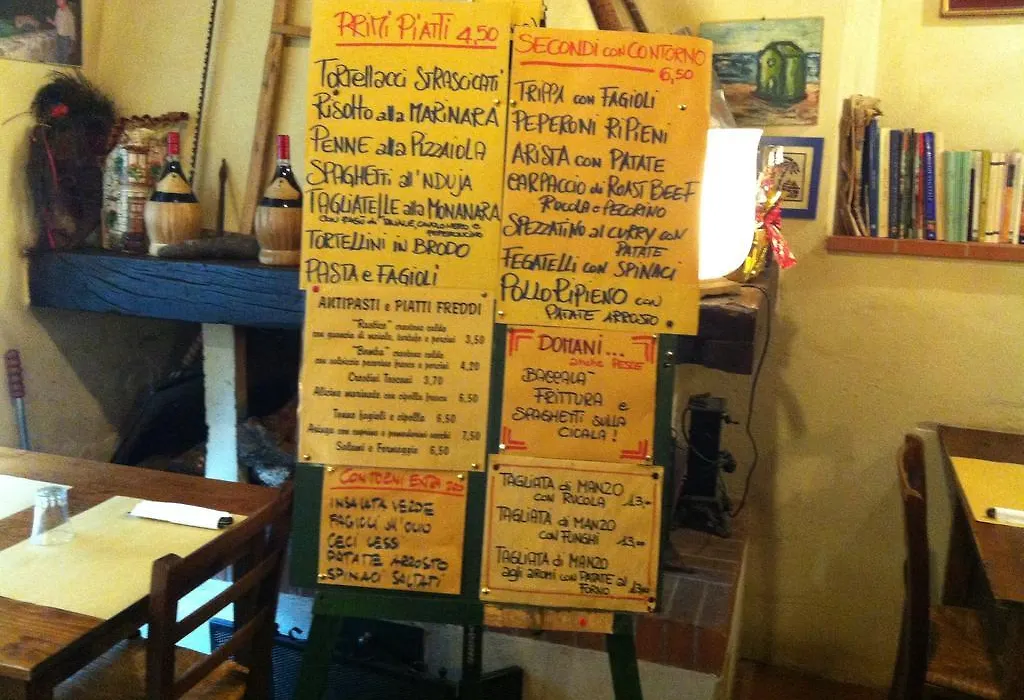 PRIMI PIATTI 4,50
TORTELLACCI STRASCICATI
RISOTTO alla MARINARA
PENNE alla PIZZAIOLA
SPAGHETTI all'NDUJA
TAGLIATELLE alla MONANARA
TORTELLINI in BRODO
PASTA e FAGIOLI
SECONDI con CONTORNO
6,50
TRIPPA con FAGIOLI
PEPERONI RIPIENI
ARISTA con PATATE
CARPACCIO di ROAST BEEF
RUCOLA e PECORINO
SPEZZATINO al CURRY con
PATATE
FEGATELLI con SPINACI
POLLO RIPIENO con
PATATE ARROSTO
ANTIPASTI e PIATTI FREDDI
"Rustico" crostone caldo
con guancia di maiale, tartufo e porcini 3,50
"Bomba" crostone caldo
con salsiccia pecorino fresco e porcini 4,20
Crostini Toscani 3,70
Alicine marinate con cipolla fresca 6,50
Tonno fagioli e cipolla 6,50
Asiago con caprino e pomodorini secchi 7,50
Salumi e Formaggio 6,50
DOMANI...
anche PESCE
BACCALA'
FRITTURA e
SPAGHETTI SULLA
CICALA!
CONTORNI EXTRA
INSALATA VERDE
FAGIOLI all'OLIO
CECI LESSI
PATATE ARROSTO
SPINACI SALTATI
TAGLIATA di MANZO
con RUCOLA 13,00
TAGLIATA di MANZO
con FUNGHI 13,00
TAGLIATA di MANZO
agli aromi con PATATE al
FORNO 13,00